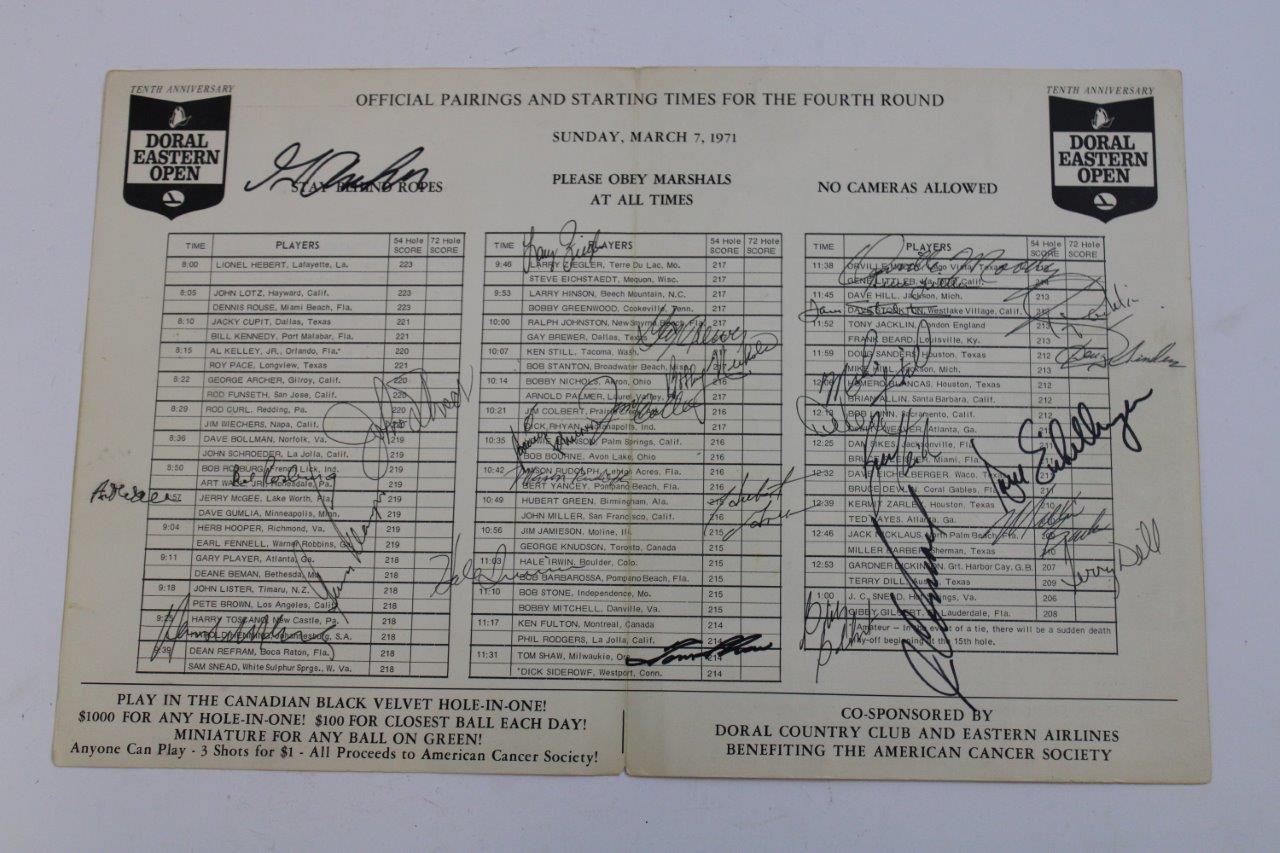 TENTH ANNIVERSARY
DORAL
EASTERN
OPEN
OFFICIAL PAIRINGS AND STARTING TIMES FOR THE FOURTH ROUND
SUNDAY, MARCH 7, 1971
TENTH ANNIVERSARY
DORAL
EASTERN
OPEN
STAY BEHIND ROPES
PLEASE OBEY MARSHALS
AT ALL TIMES
NO CAMERAS ALLOWED
TIME PLAYERS 54 Hole SCORE 72 Hole SCORE
8:00 LIONEL HEBERT, Lafayette, La. 223
8:05 JOHN LOTZ, Hayward, Calif. 223
DENNIS ROUSE, Miami Beach, Fla. 223
8:10 JACKY CUPIT, Dallas, Texas 221
BILL KENNEDY, Port Malabar, Fla. 221
8:15 AL KELLEY, JR., Orlando, Fla.* 220
ROY PACE, Longview, Texas 221
8:22 GEORGE ARCHER, Gilroy, Calif. 220
ROD FUNSETH, San Jose, Calif. 220
8:29 ROD CURL, Redding, Pa. 220
JIM WIECHERS, Napa, Calif.
8:36 DAVE BOLLMAN, Norfolk, Va.
JOHN SCHROEDER, La Jolla, Calif. 219
8:50 BOB ROSBURG, French Lick, Ind. 219
ART WALL, JR., Honesdale, Pa. 219
8:57 JERRY McGEE, Lake Worth, Fla. 219
DAVE GUMLIA, Minneapolis, Minn. 219
9:04 HERB HOOPER, Richmond, Va. 219
EARL FENNELL, Warner Robbins, Ga. 219
9:11 GARY PLAYER, Atlanta, Ga. 218
DEANE BEMAN, Bethesda, Md. 218
9:18 JOHN LISTER, Timaru, N.Z. 218
PETE BROWN, Los Angeles, Calif. 218
9:25 HARRY TOSCANO, New Castle, Pa. 218
HAROLD HENNING, Johannesburg, S.A. 218
9:39 DEAN REFRAM, Boca Raton, Fla. 218
SAM SNEAD, White Sulphur Sprgs., W. Va. 218
TIME PLAYERS 54 Hole SCORE 72 Hole SCORE
9:46 LARRY ZIEGLER, Terre Du Lac, Mo. 217
STEVE EICHSTAEDT, Mequon, Wisc. 217
9:53 LARRY HINSON, Beech Mountain, N.C. 217
BOBBY GREENWOOD, Cookeville, Tenn. 217
10:00 RALPH JOHNSTON, New Smyrna Beach, Fla. 217
GAY BREWER, Dallas, Texas
10:07 KEN STILL, Tacoma, Wash.
BOB STANTON, Broadwater Beach, Miss.
10:14 BOBBY NICHOLS, Akron, Ohio 216
ARNOLD PALMER, Laurel Valley, Pa. 216
10:21 JIM COLBERT, Prairie 216
DICK RHYAN, Indianapolis, Ind. 217
10:35 Palm Springs, Calif. 216
BOB BOURNE, Avon Lake, Ohio 216
10:42 MASON RUDOLPH, Lehigh Acres, Fla. 216
BERT YANCEY, Pompano Beach, Fla. 216
10:49 HUBERT GREEN, Birmingham, Ala. 215
JOHN MILLER, San Francisco, Calif. 216
10:56 JIM JAMIESON, Moline, Ill. 215
GEORGE KNUDSON, Toronto, Canada 215
11:03 HALE IRWIN, Boulder, Colo. 215
BOB BARBAROSSA, Pompano Beach, Fla. 215
11:10 BOB STONE, Independence, Mo. 215
BOBBY MITCHELL, Danville, Va. 215
11:17 KEN FULTON, Montreal, Canada 214
PHIL RODGERS, La Jolla, Calif. 214
11:31 TOM SHAW, Milwaukie, Ore. 214
*DICK SIDEROWF, Westport, Conn. 214
TIME PLAYERS 54 Hole SCORE 72 Hole SCORE
11:38 ORVILLE MOODY, Lago Vista, Texas
GENE LITTLER, La Jolla, Calif. 214
11:45 DAVE HILL, Jackson, Mich. 213
DAVE STOCKTON, Westlake Village, Calif. 212
11:52 TONY JACKLIN, London England 213
FRANK BEARD, Louisville, Ky. 213
11:59 DOUG SANDERS, Houston, Texas 212
MIKE HILL, Jackson, Mich. 213
12:06 HOMERO BLANCAS, Houston, Texas 212
BRIAN ALLIN, Santa Barbara, Calif. 212
12:13 BOB LUNN, Sacramento, Calif. 212
WEAVER, Atlanta, Ga. 212
12:25 DAN SIKES, Jacksonville, Fla.
Miami, Fla.
12:32 DAVE EICHELBERGER, Waco, Texas 212
BRUCE DEVLIN, Coral Gables, Fla. 211
12:39 KERMIT ZARLEY, Houston, Texas 210
TED HAYES, Atlanta, Ga. 211
12:46 JACK NICKLAUS, North Palm Beach, Fla.
MILLER BARBER, Sherman, Texas 210
12:53 GARDNER DICKINSON, Grt. Harbor Cay, G.B. 207
TERRY DILL, Austin, Texas 209
1:00 J. C. SNEAD, Hot Springs, Va. 206
GIBBY GILBERT, Ft. Lauderdale, Fla. 208
*Amateur — In the event of a tie, there will be a sudden death
play-off beginning at the 15th hole.
Larry Ziegler
Orville Moody
Gay Brewer
Bobby Nichols
Doug Sanders
Dave Eichelberger
Bob Rosburg
Art Wall
Mason Rudolph
Hubert Green
Hale Irwin
Terry Dill
Tom Shaw
PLAY IN THE CANADIAN BLACK VELVET HOLE-IN-ONE!
$1000 FOR ANY HOLE-IN-ONE! $100 FOR CLOSEST BALL EACH DAY!
MINIATURE FOR ANY BALL ON GREEN!
Anyone Can Play - 3 Shots for $1 - All Proceeds to American Cancer Society!
CO-SPONSORED BY
DORAL COUNTRY CLUB AND EASTERN AIRLINES
BENEFITING THE AMERICAN CANCER SOCIETY